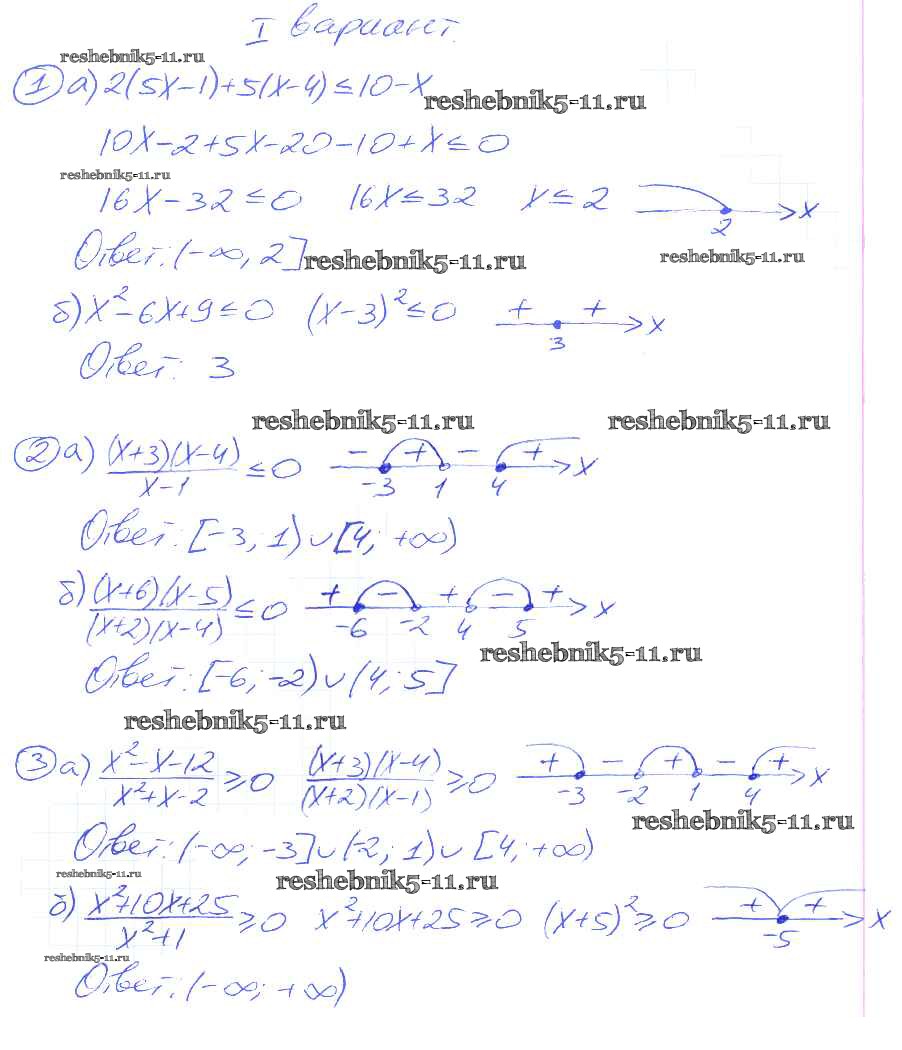 I вариант.
reshebnik5-11.ru
① а) 2(5x-1)+5(x-4)≤10-x
reshebnik5-11.ru
10x-2+5x-20-10+x≤0
reshebnik5-11.ru
16x-32≤0 16x≤32 x≤2 2 x
Ответ: (-∞, 2] reshebnik5-11.ru reshebnik5-11.ru
б) x²-6x+9≤0 (x-3)²≤0 + + 3 x
Ответ: 3
reshebnik5-11.ru reshebnik5-11.ru
② а) (x+3)(x-4)/x-1 ≤0 - + - + -3 1 4 x
Ответ: [-3; 1)∪[4; +∞)
б) (x+6)(x-5)/(x+2)(x-4) ≤0 + - + - + -6 -2 4 5 x
reshebnik5-11.ru
Ответ: [-6; -2)∪(4; 5]
reshebnik5-11.ru
③ а) x²-x-12/x²+x-2 ≥0 (x+3)(x-4)/(x+2)(x-1) ≥0 + - + - + -3 -2 1 4 x
reshebnik5-11.ru
Ответ: (-∞; -3]∪(-2; 1)∪[4; +∞)
reshebnik5-11.ru reshebnik5-11.ru
б) x²+10x+25/x²+1 ≥0 x²+10x+25≥0 (x+5)²≥0 + + -5 x
reshebnik5-11.ru
Ответ: (-∞; +∞)